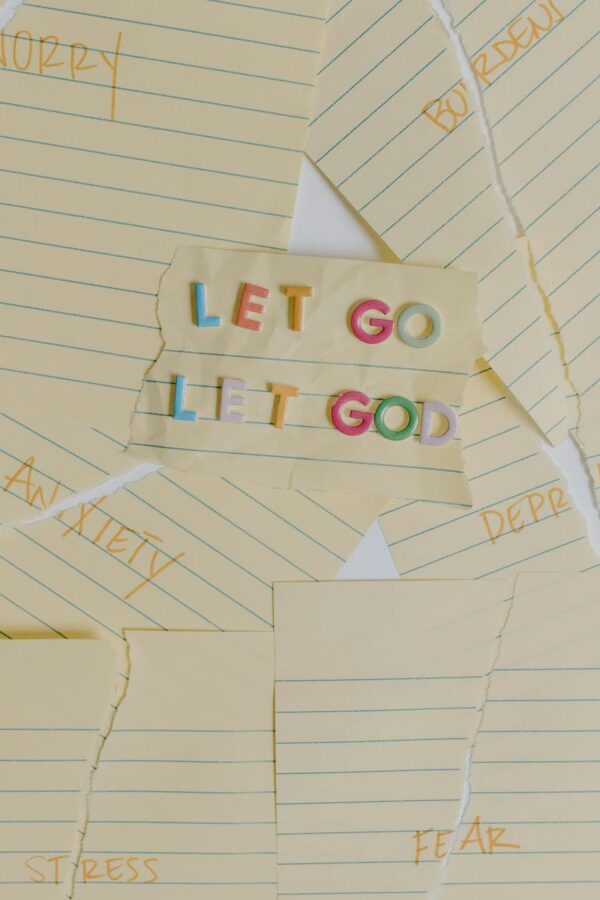 WORRY
BURDENS
LET GO
LET GOD
ANXIETY
DEPR
STRESS
FEAR